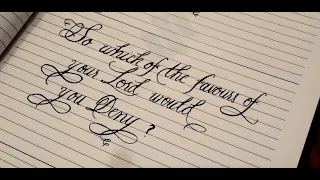 So which of the favours of
your Lord would
you Deny?